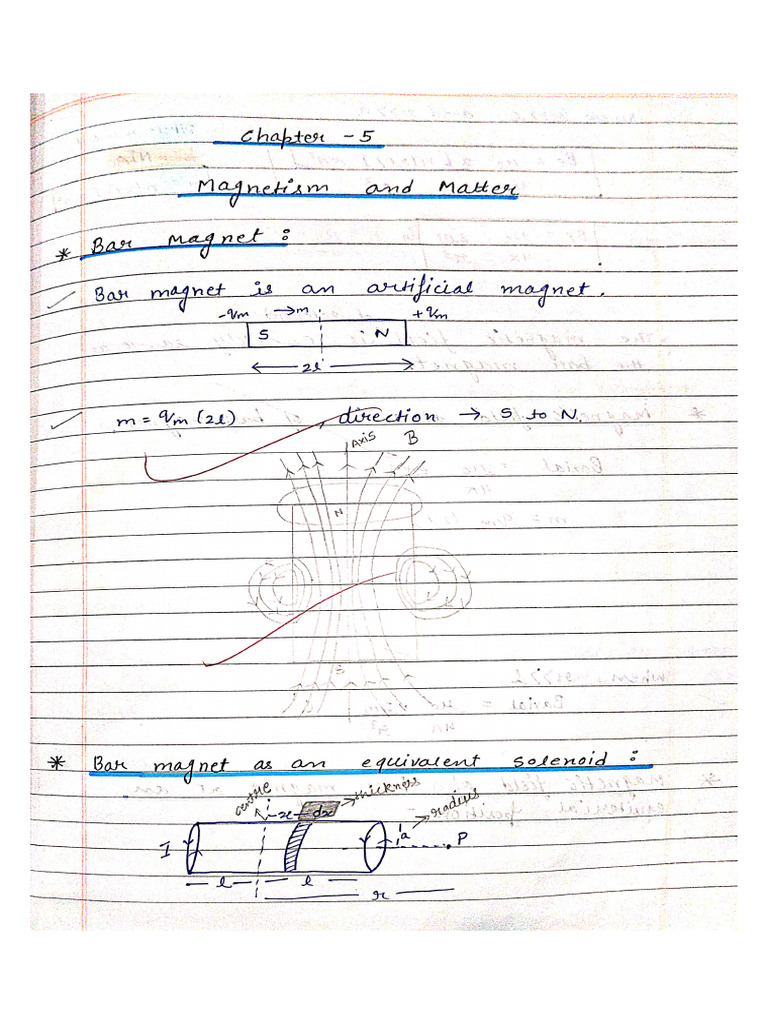 Chapter - 5
Magnetism and Matter
* Bar Magnet :
Bar magnet is an artificial magnet.
-qm → m +qm
S N
← 2l →
m = qm (2l) , direction → S to N.
Axis B
N
S
* Bar magnet as an equivalent solenoid :
centre x dx → thickness → radius
I a P
l l
r